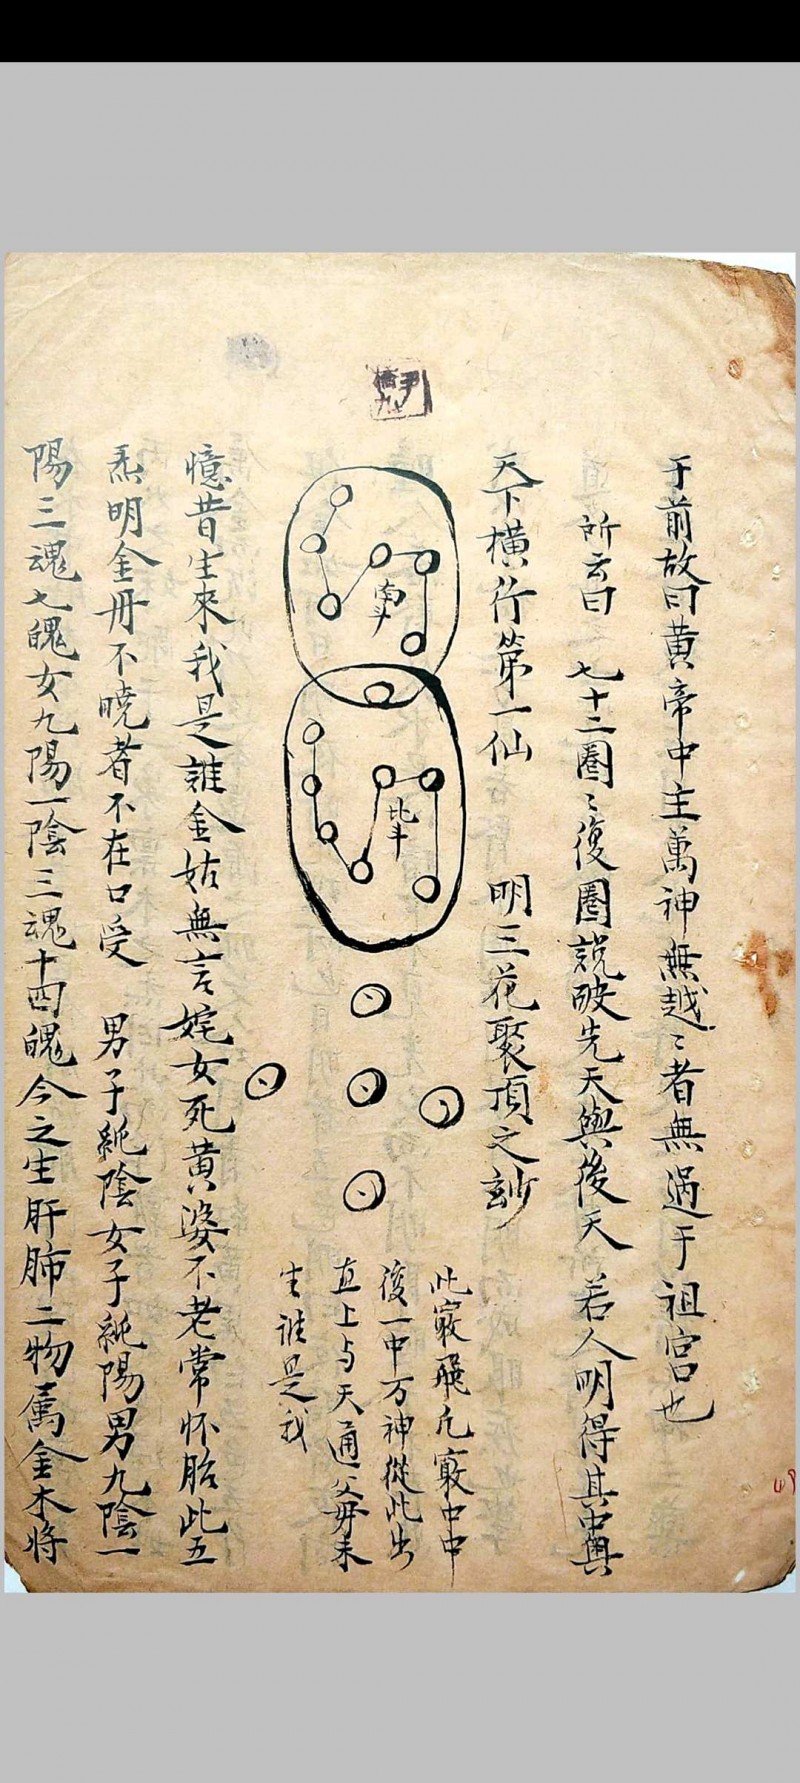 于前故曰黄帝中主萬神無越〻者無過于祖宫也
所云曰 七十二圈〻復圈説破先天與後天 若人明得其中奥
天下横行第一仙 明三花聚頂之玅
南斗
北斗
此竅飛凡竅中中
復一中万神從此出
直上与天通父母未
生谁是我
憶昔生來我是誰金姑無言姹女死黄婆不老常怀胎此五
炁明金丹不曉者不在口受 男子純陰女子純陽男九陰一
陽三魂七魄女九陽一陰三魂十四魄今之生肝肺二物属金木将